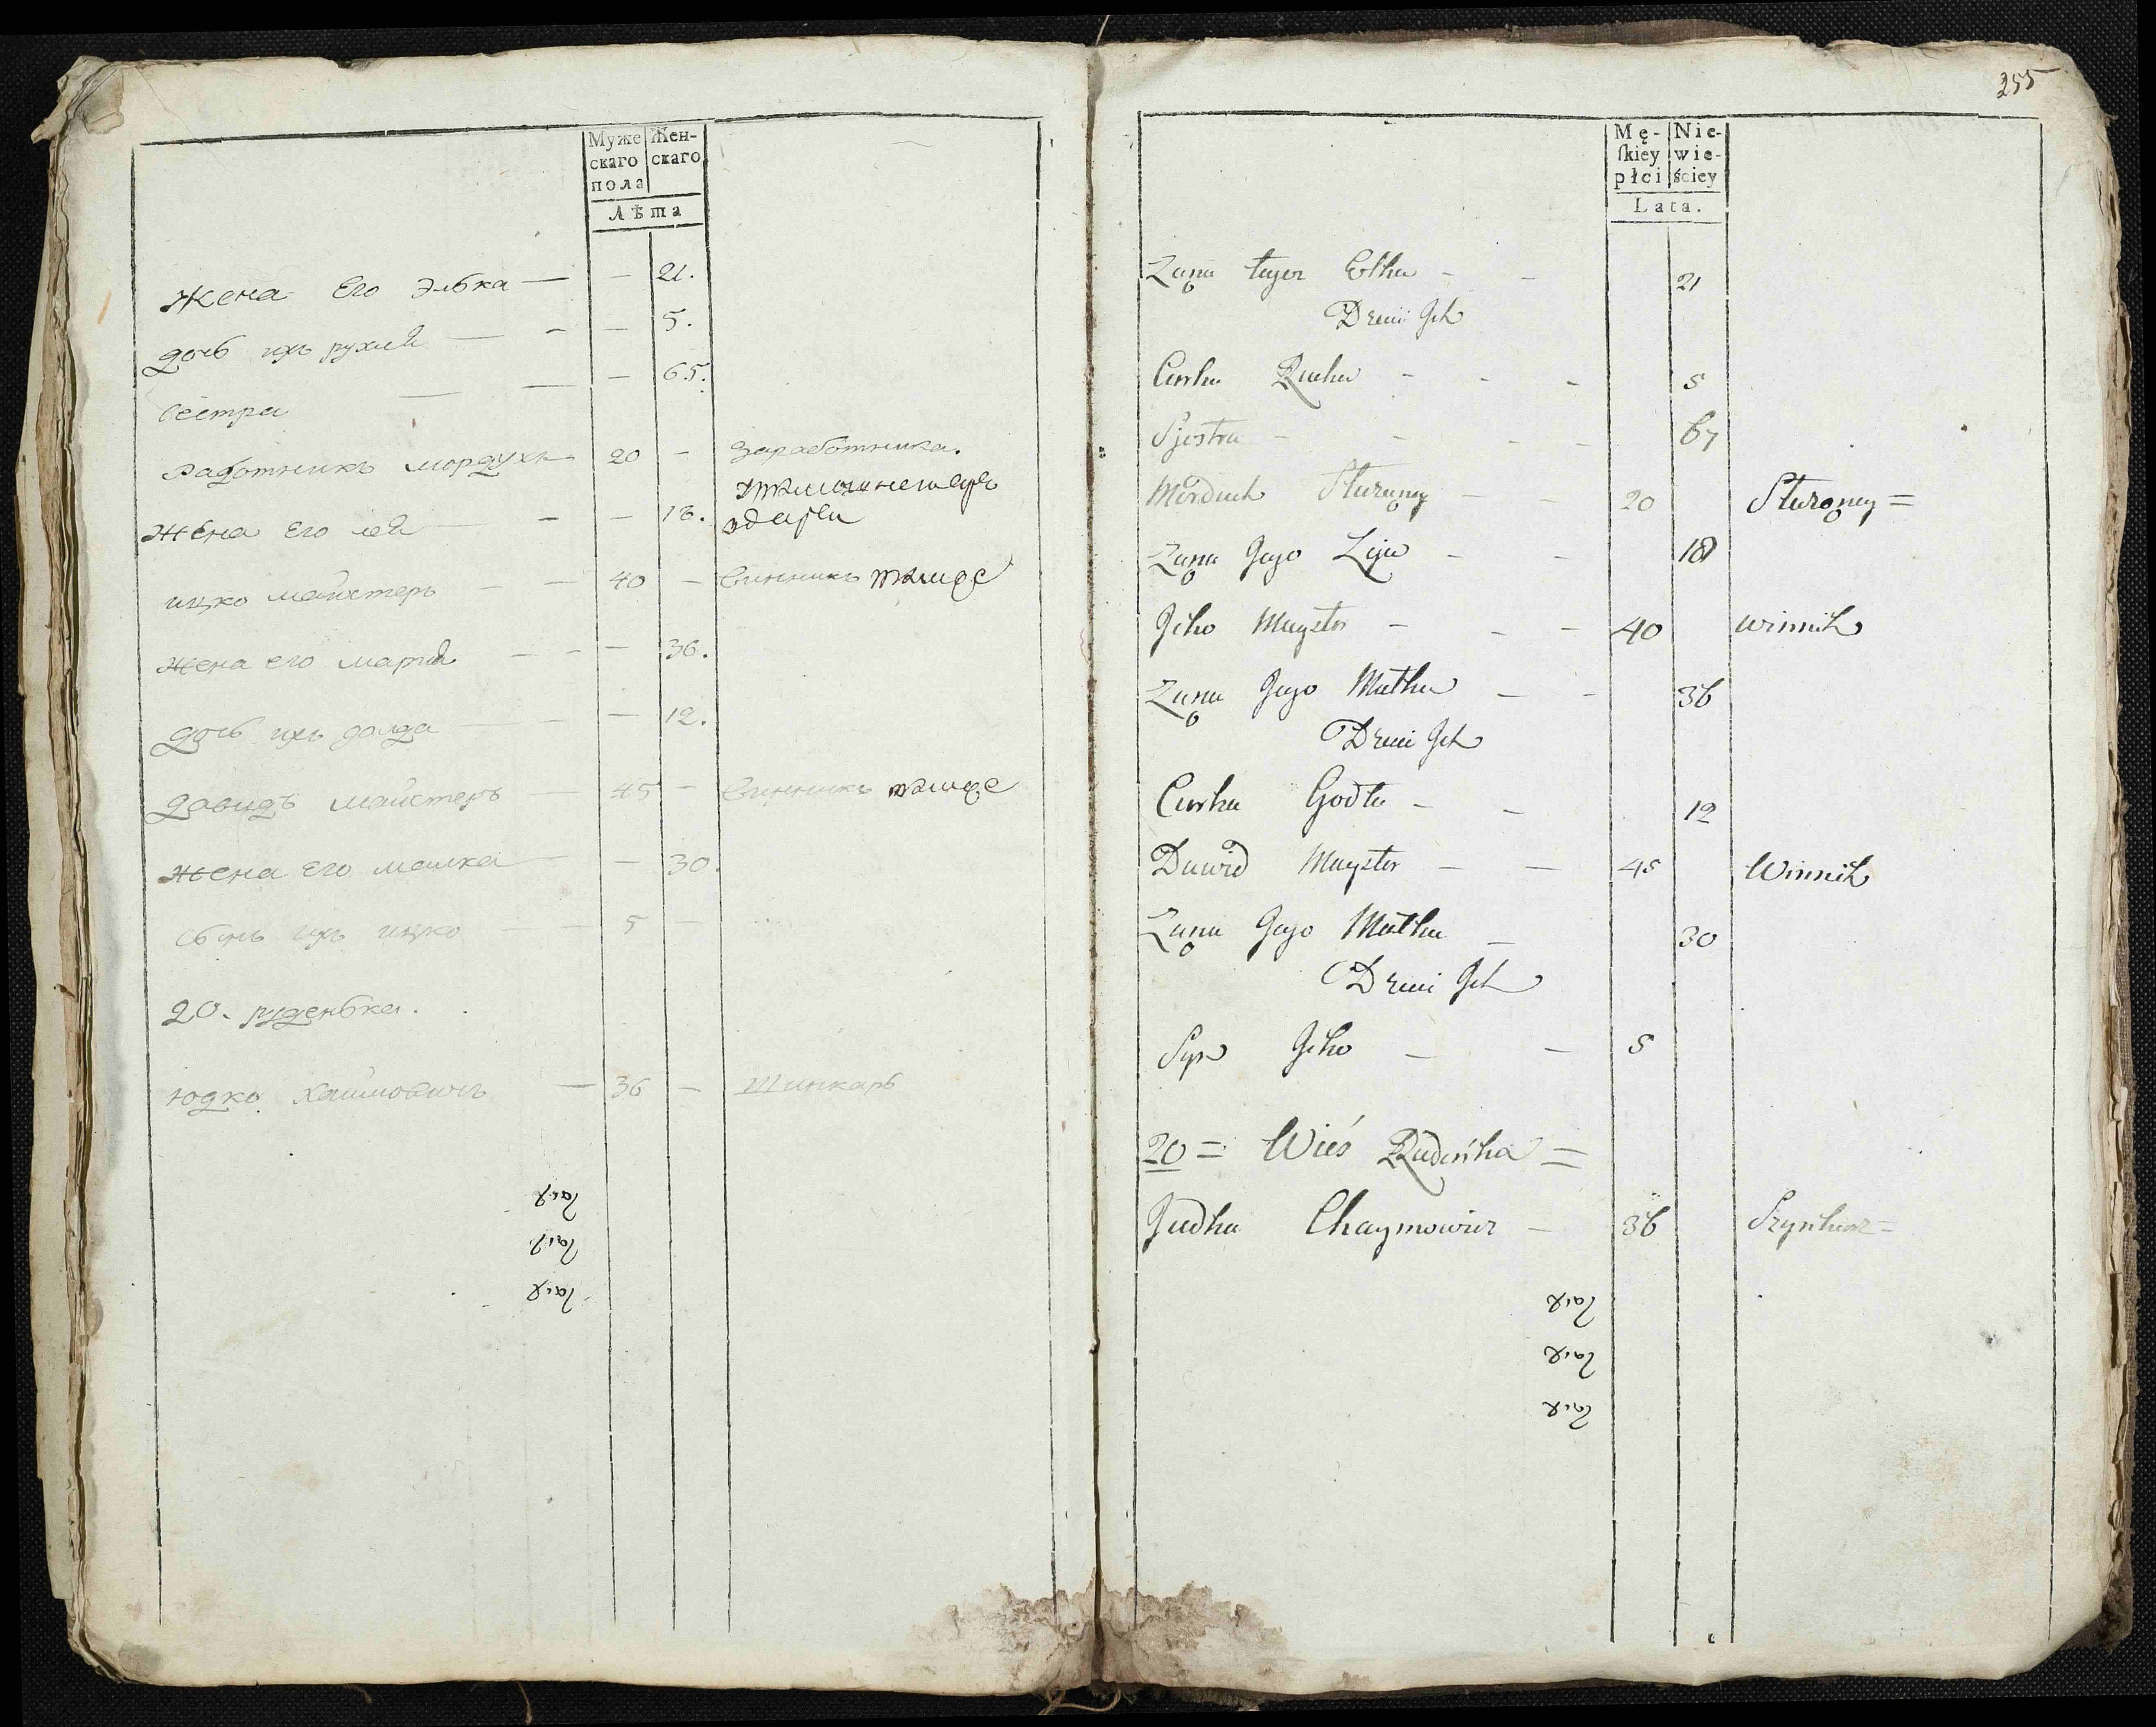 Муже
скаго
пола
Жен-
скаго
Лѣта
Жена Его Элька — — 21.
дочь ихъ рухля — - — 5.
сестра — — — 65.
Работникъ мордухъ 20 - Заработника.
жена Его лея — - — 18.
ицко майстеръ — — 40 - Винникъ
жена его — - — 36.
дочь ихъ голда — — — 12.
давидъ майстеръ — 45 - Винникъ
жена Его малка — — 30.
сынъ ихъ ицко — — 5 —
20. руденька.
юдко хаимовичъ — 36 — Шинкарь
255
Mę-
ſkiey
płci
Nie-
wie-
ściey
Lata.
Żona tegoż Elka - - 21
Dzieci Ich
Curka Rucha - - - 5
Sjostra - - - - 67
Morduch Starozny - - 20 Starozny =
Żona Jego Leja - - 18
Icko Mayster - - - 40 winnik
Żona Jego Malka - - 36
Dzieci Ich
Curka Godla - - 12
Dawid Mayster - - 45 Winnik
Żona Jego Malka - 30
Dzieci Ich
Syn Icko - - 5
20 = Wieś Rudeńka =
Judka Chaymowicz - 36 Szynkarz =